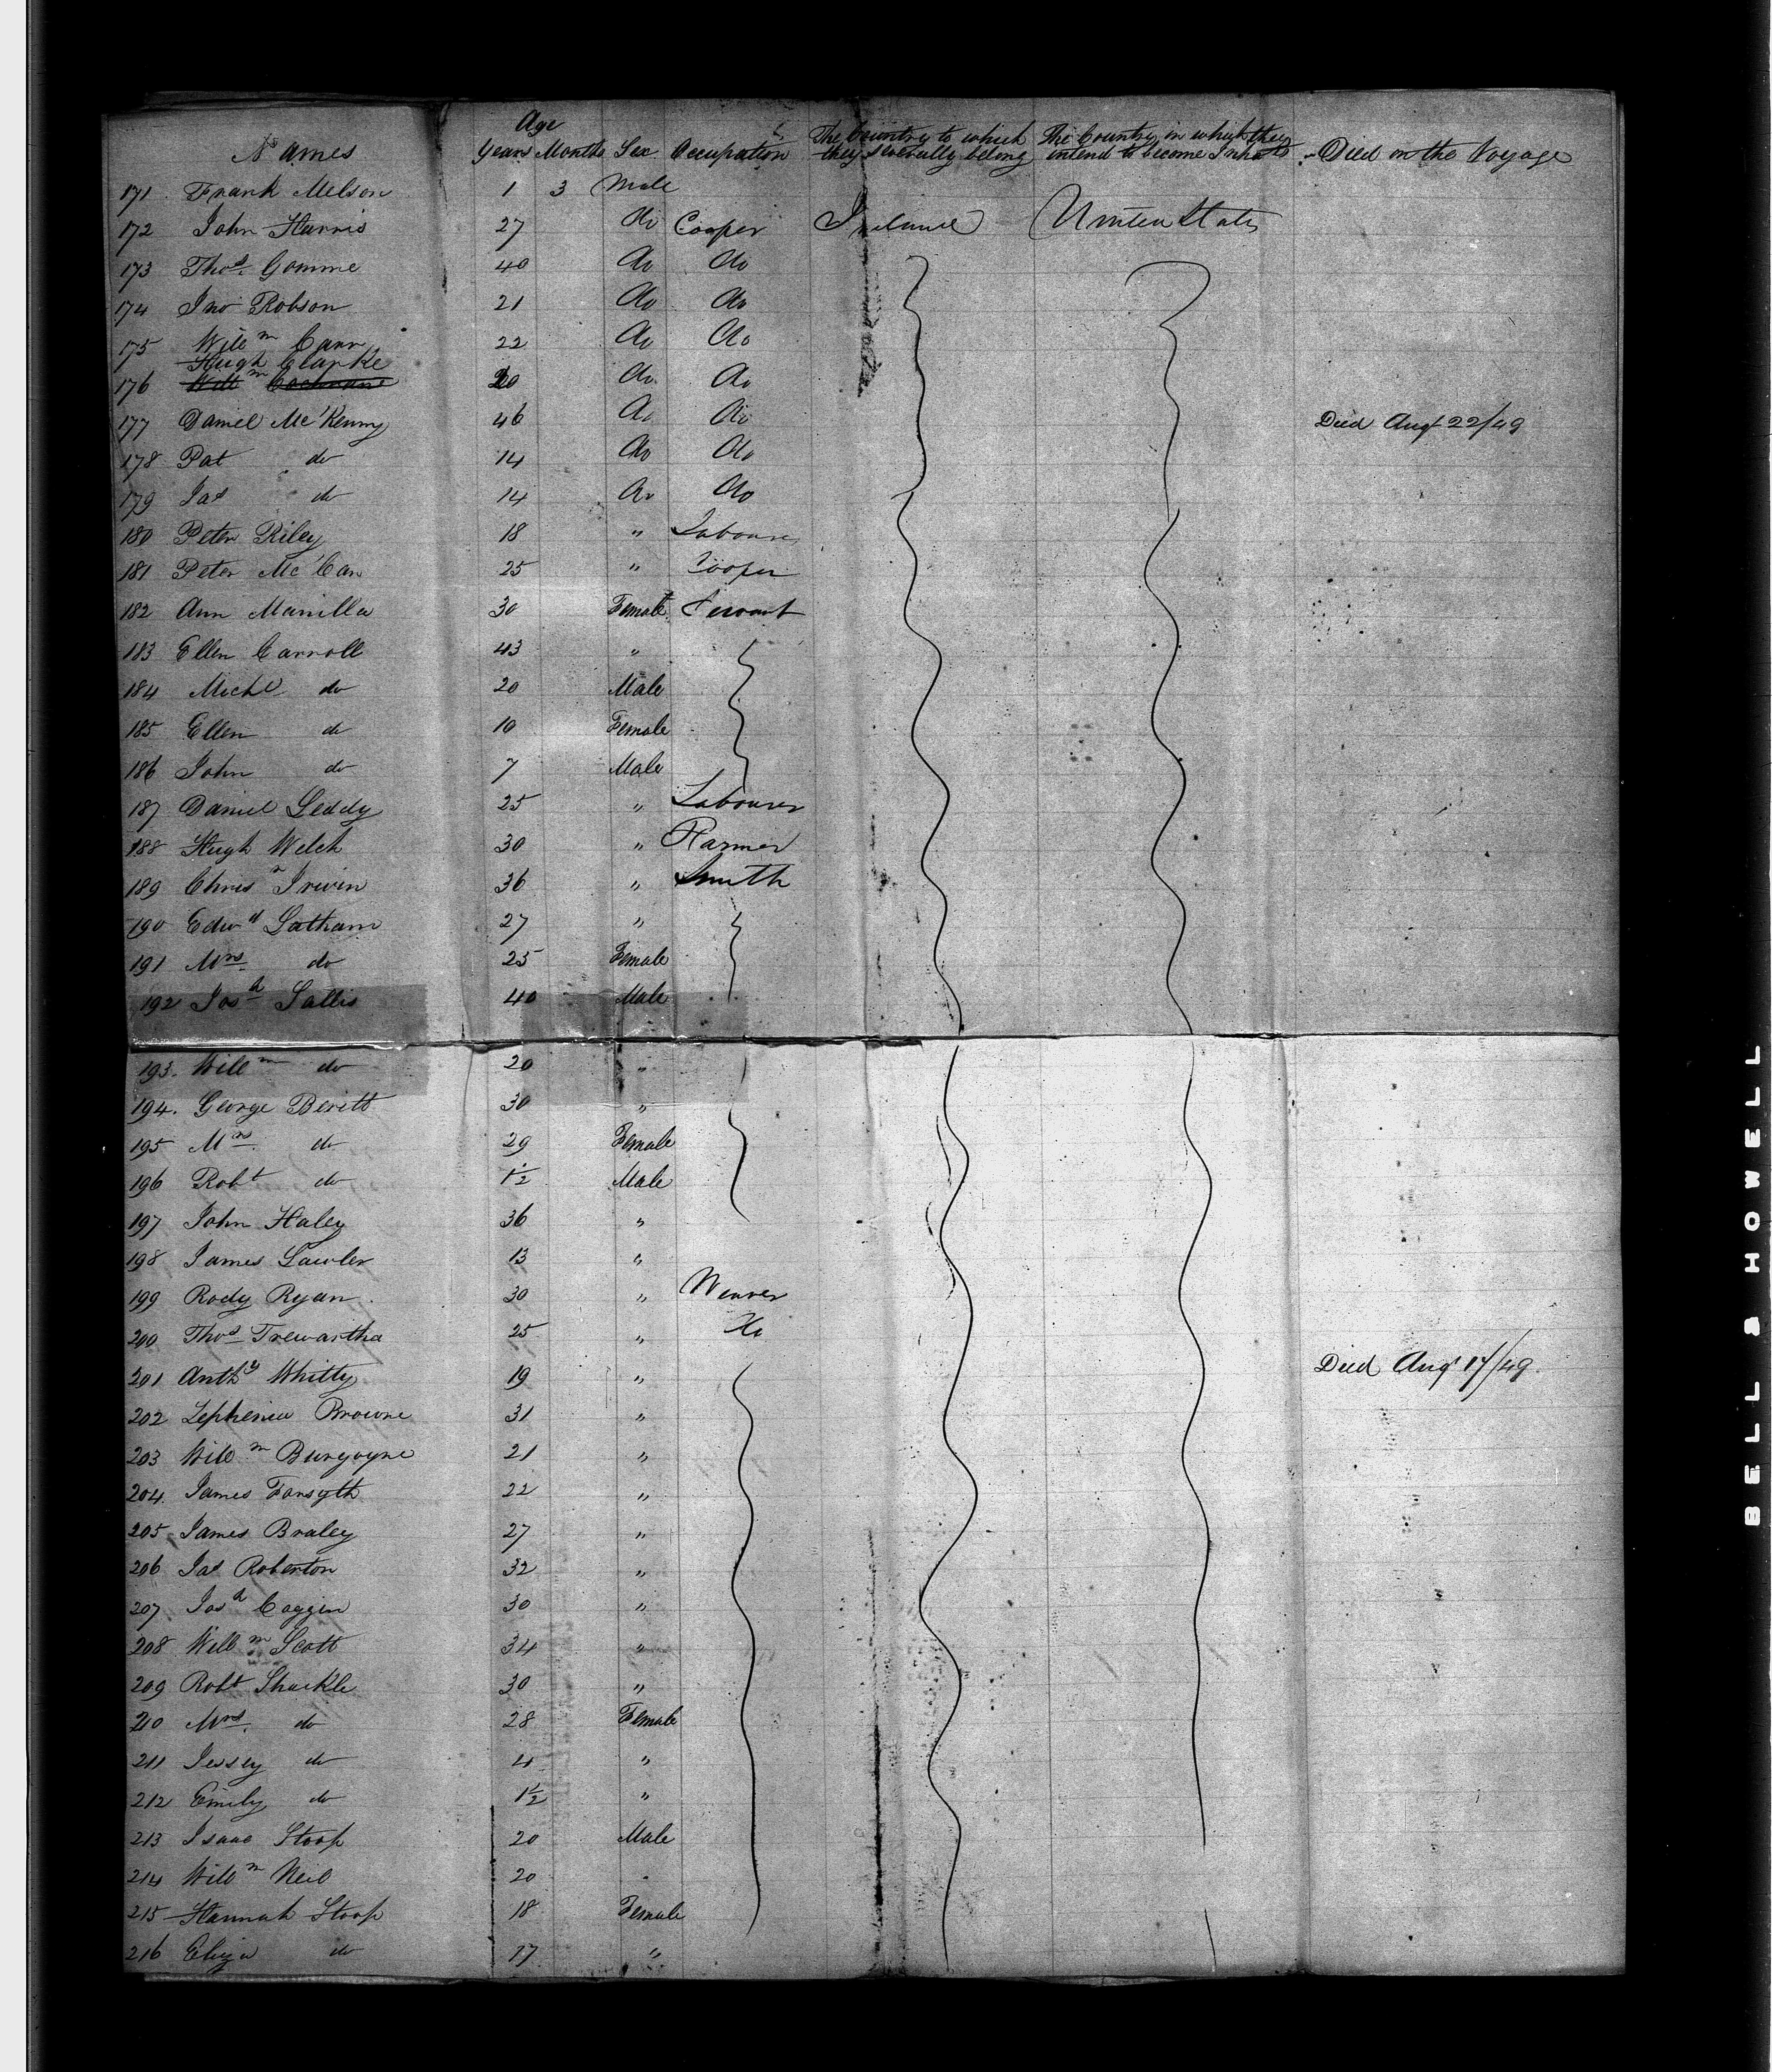 Age
Names Years Months Sex Occupation The Country to which they severally belong The Country in which they intend to become Inhabts Died on the Voyage
171 Frank Melson 1 3 Male
172 John Harris 27 do Cooper Ireland United States
173 Thos. Gomme 40 do do
174 Jno Robson 21 do do
175 Willm Carr 22 do do
Hugh Clarke
176 Willm Cochrane 20 do do
177 Daniel McKenny 46 do do Died Augt 22/49
178 Pat do 14 do do
179 Jas do 14 do do
180 Peter Riley 18 " Labourer
181 Peter McCan 25 " Cooper
182 Ann Manilla 30 Female Servant
183 Ellen Carroll 43 "
184 Michl do 20 Male
185 Ellen do 10 Female
186 John do 7 Male
187 Daniel Leddy 25 " Labourer
188 Hugh Welch 30 " Farmer
189 Chrisn Irwin 36 " Smith
190 Edwd Latham 27 "
191 Mrs do 25 Female
192 Josh Sallis 40 Male
193. Willm do 20 "
194. George Beritt 30 "
195 Mrs. do 29 Female
196 Robt do 1½ Male
197 John Haley 36 "
198 James Lawler 13 "
199 Rody Ryan 30 " Weaver
200 Thos Trewartha 25 " Do
201 Anthy Whitty 19 " Died Augt 17/49
202 Zephenia Browne 31 "
203 Willm Burgoyne 21 "
204 James Forsyth 22 "
205 James Braley 27 "
206 Jas Roberton 32 "
207 Josh Coggin 30 "
208 Willm Scott 34 "
209 Robt Shackle 30 "
210 Mrs. do 28 Female
211 Jessey do 4 "
212 Emily do 1½ "
213 Isaac Stoop 20 Male
214 Willm Neil 20 "
215 Hannah Stoop 18 Female
216 Eliza do 17 "
BELL & HOWELL